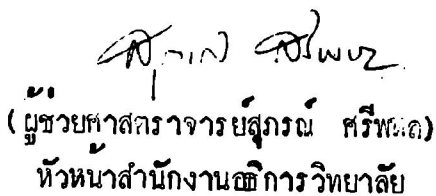 (ผู้ช่วยศาสตราจารย์สุภรณ์ ศรีพหล)
หัวหน้าสำนักงานอธิการวิทยาลัย